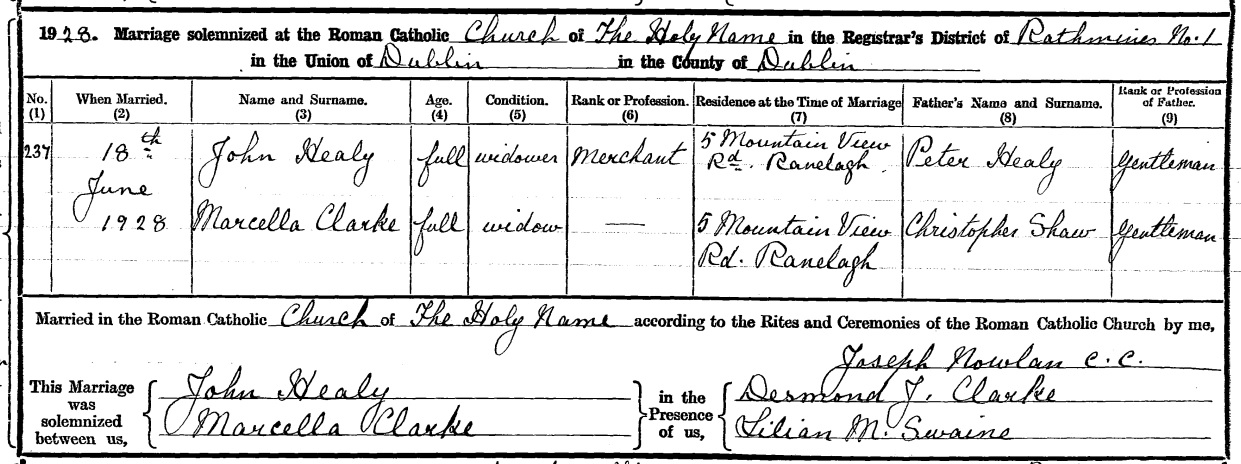 1928. Marriage solemnized at the Roman Catholic Church of The Holy Name in the Registrar's District of Rathmines No. 1
in the Union of Dublin in the County of Dublin
No. (1) When Married. (2) Name and Surname. (3) Age. (4) Condition. (5) Rank or Profession. (6) Residence at the Time of Marriage (7) Father's Name and Surname. (8) Rank or Profession of Father. (9)
237 18th John Healy full widower Merchant 5 Mountain View Rd. Ranelagh. Peter Healy Gentleman
June
1928 Marcella Clarke full widow — 5 Mountain View Christopher Shaw Gentleman
Rd. Ranelagh
Married in the Roman Catholic Church of The Holy Name according to the Rites and Ceremonies of the Roman Catholic Church by me,
Joseph Nowlan C.C.
This Marriage was solemnized between us,
John Healy
Marcella Clarke
in the Presence of us,
Desmond J. Clarke
Lilian M. Swaine